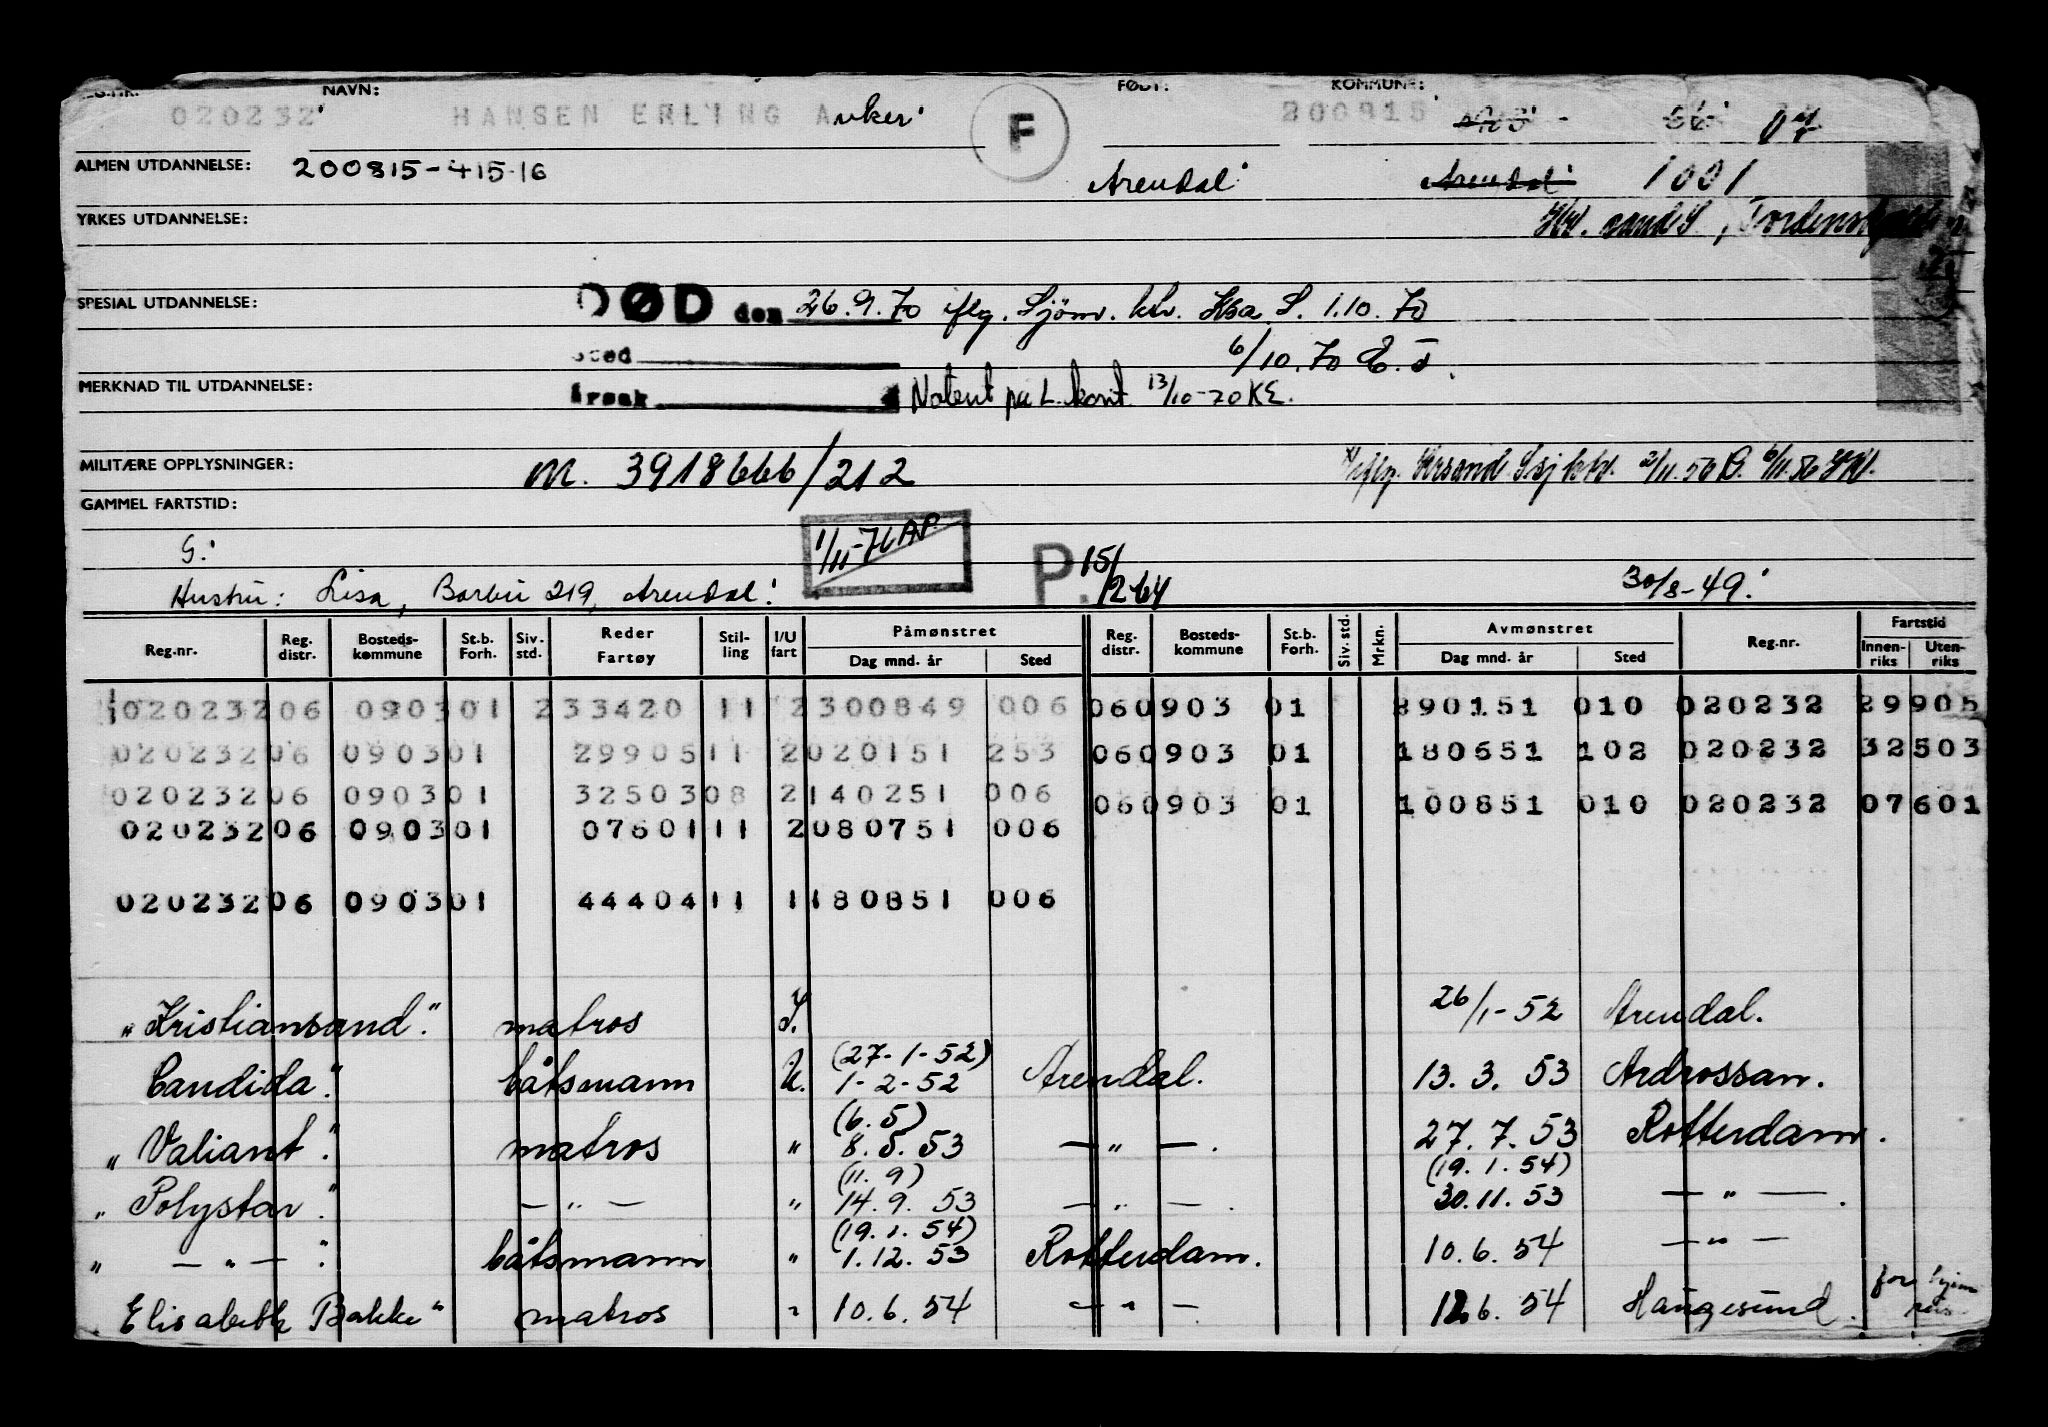 NAVN: FØDT: KOMMUNE:
020232 HANSEN ERLING Anker F 200815 04
ALMEN UTDANNELSE: 200815-415-16 Arendal Arendal 1001
YRKES UTDANNELSE:
SPESIAL UTDANNELSE: DØD den 26.9.70 iflg. Sjöm. ktr. Ksa. S. 1.10.70
Sted 6/10.70 E.J.
MERKNAD TIL UTDANNELSE: Årsak Notert på L.kort 13/10-70 KE.
MILITÆRE OPPLYSNINGER: M. 3918666/212
GAMMEL FARTSTID:
G. 1/11-76 AP P. 15/
Hustru: Lisa, Barbu 219, Arendal. 12-64 30/8-49.
Reg.nr. Reg. distr. Bosteds-kommune St.b. Forh. Siv. std. Reder Fartøy Stil-ling I/U fart Påmønstret Dag mnd. år Sted Reg. distr. Bosteds-kommune St.b. Forh. Siv. std. Mrkn. Avmønstret Dag mnd. år Sted Reg.nr. Fartstid Innen-riks Uten-riks
020232 06 0903 01 2 33420 11 2 300849 006 06 0903 01 290151 010 020232 29905
020232 06 0903 01 29905 11 2 020151 253 06 0903 01 180651 102 020232 32503
020232 06 0903 01 32503 08 2 140251 006 06 0903 01 100851 010 020232 07601
020232 06 0903 01 07601 11 2 080751 006
020232 06 0903 01 44404 11 1 180851 006
"Kristiansand". matros I. 26/1-52 Arendal.
Candida". båtsmann U. (27-1-52) 1-2-52 Arendal. 13. 3. 53 Ardrossan.
"Valiant". matros " (6.5) 8. 5. 53 — " — . 27. 7. 53 Rotterdam.
"Polystar". — " — " (11.9) 14. 9. 53 — " — . (19. 1. 54) 30.11. 53 — " — .
" — " — ". båtsmann " (19. 1. 54) 1. 12. 53 Rotterdam. 10. 6. 54 — " —
Elisabeth Bakke" matros " 10. 6. 54 — " — 12.6. 54 Haugesund. for hjem reis